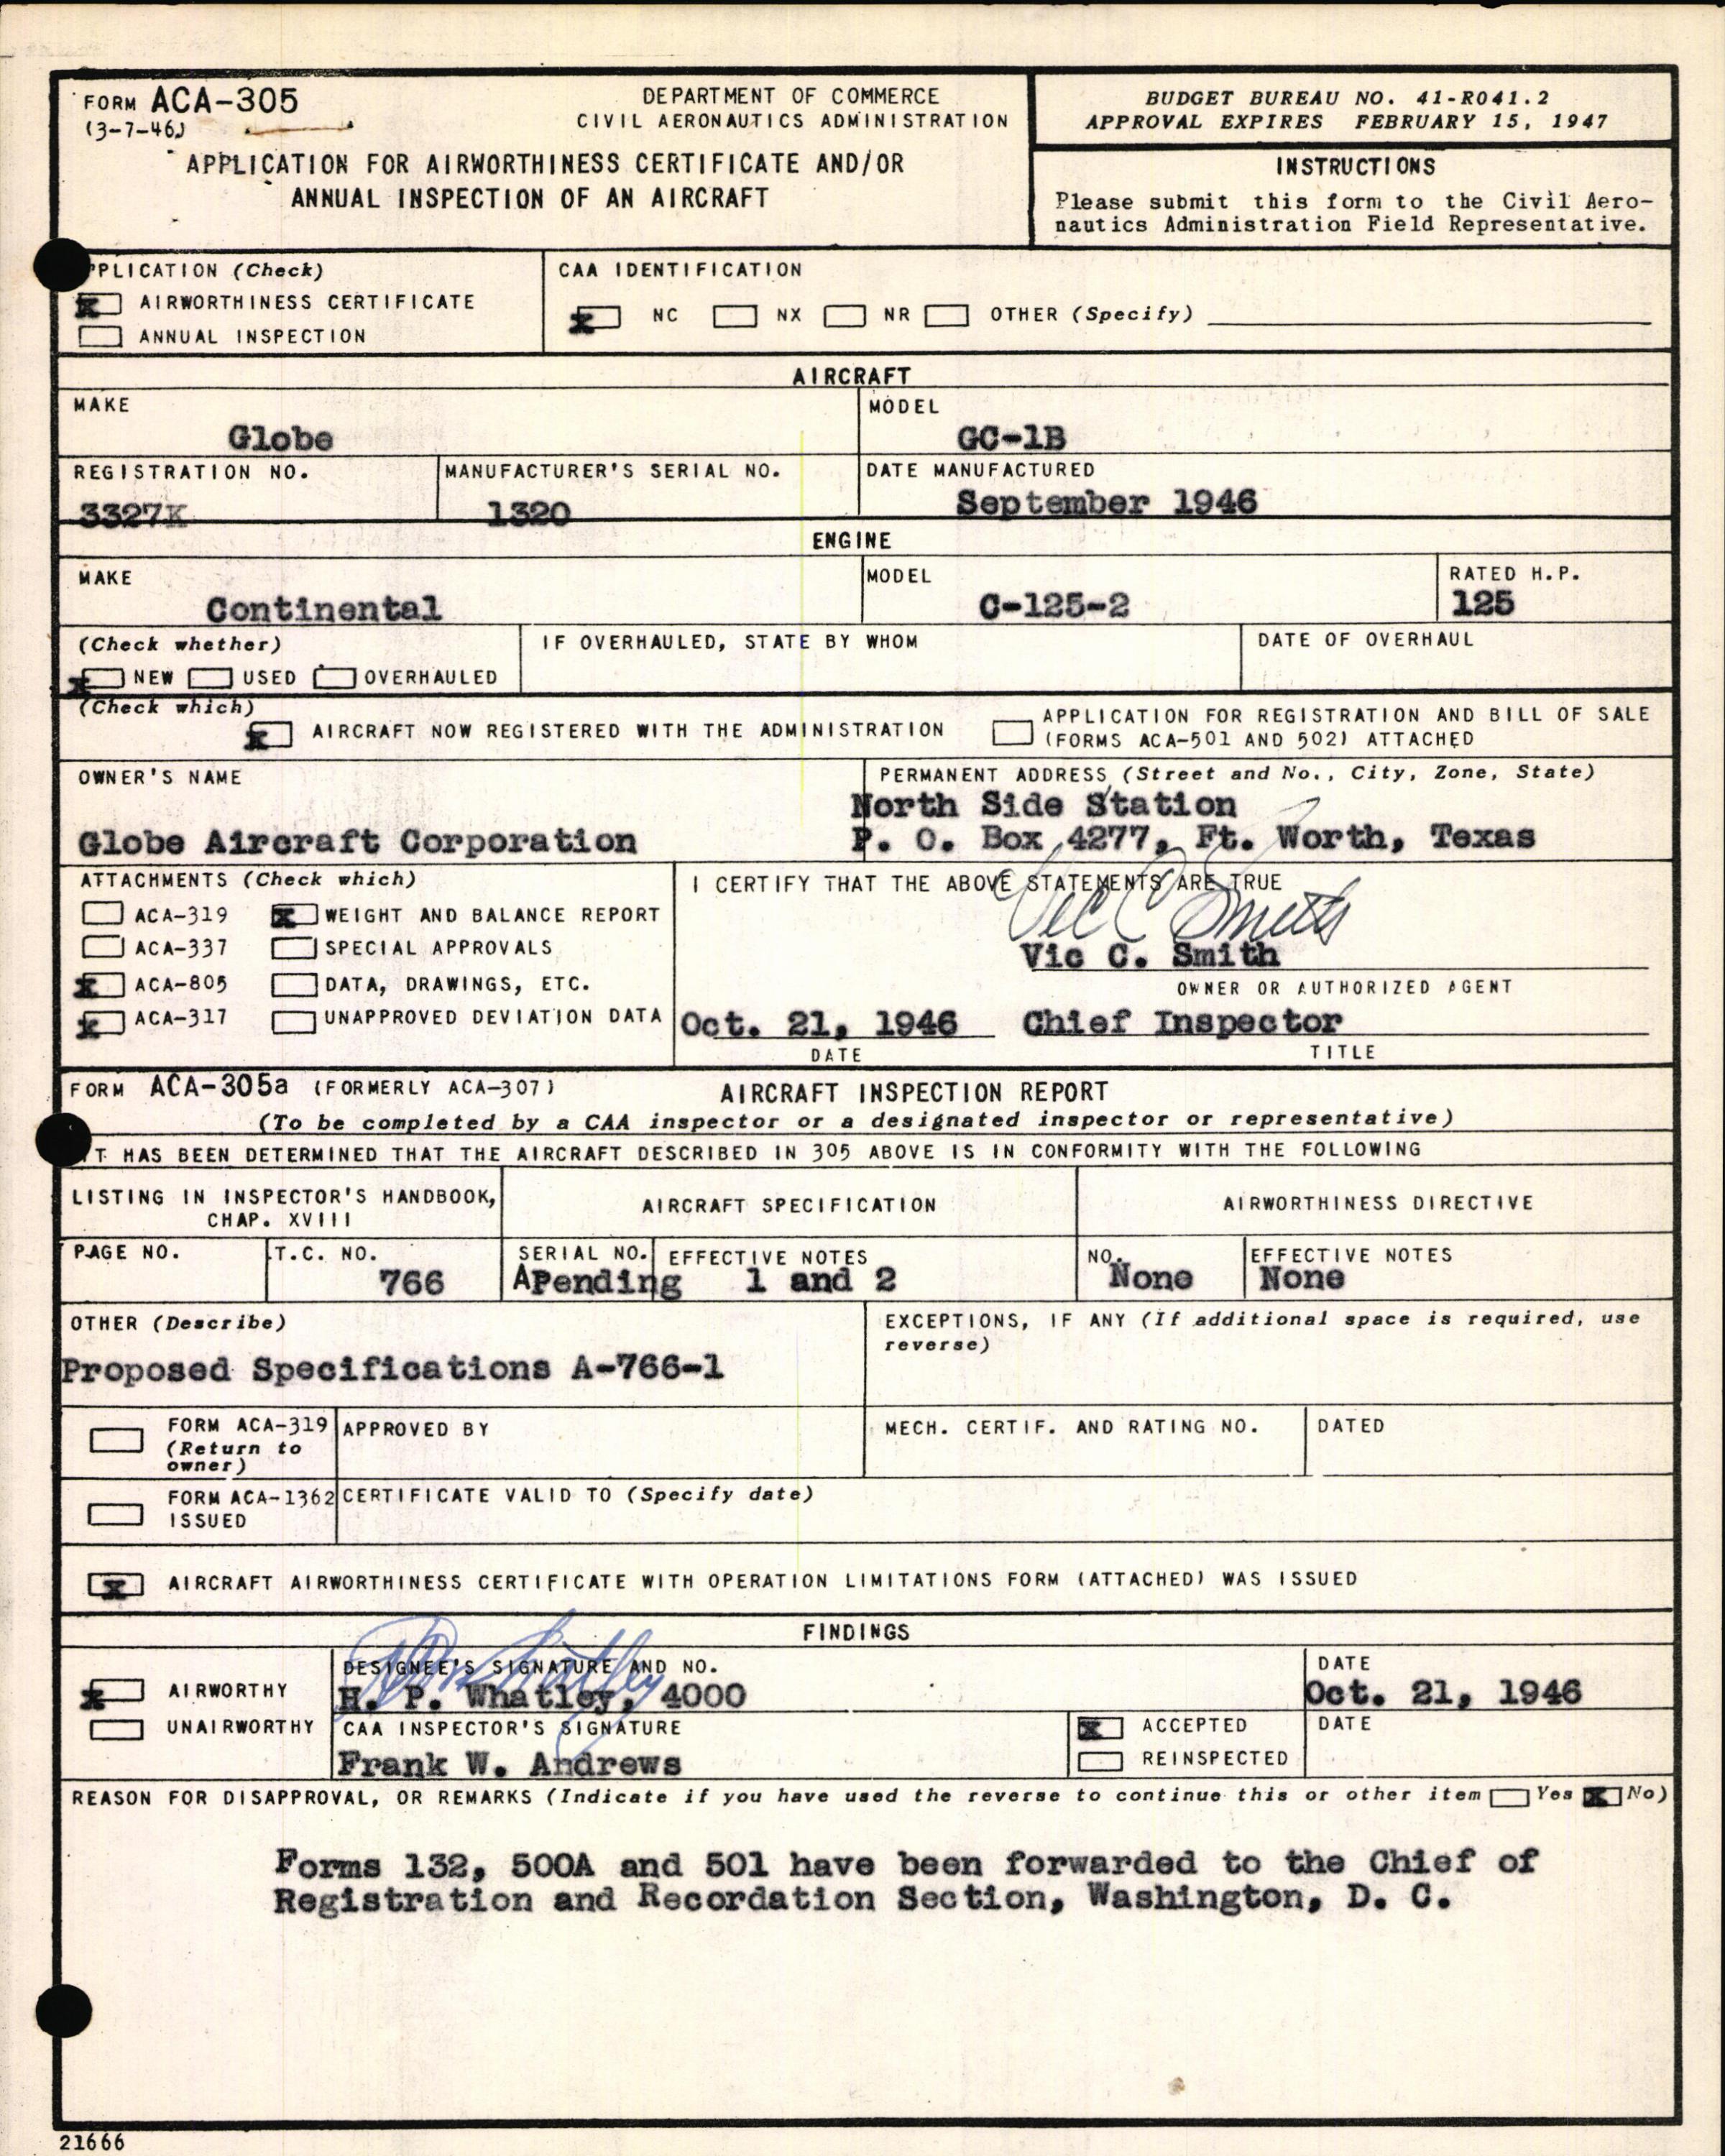 FORM ACA-305
(3-7-46)
DEPARTMENT OF COMMERCE
CIVIL AERONAUTICS ADMINISTRATION
APPLICATION FOR AIRWORTHINESS CERTIFICATE AND/OR
ANNUAL INSPECTION OF AN AIRCRAFT
BUDGET BUREAU NO. 41-R041.2
APPROVAL EXPIRES FEBRUARY 15, 1947
INSTRUCTIONS
Please submit this form to the Civil Aero-
nautics Administration Field Representative.
PPLICATION (Check)
x AIRWORTHINESS CERTIFICATE
ANNUAL INSPECTION
CAA IDENTIFICATION
x NC NX NR OTHER (Specify)
AIRCRAFT
MAKE
Globe
MODEL
GC-1B
REGISTRATION NO.
3327K
MANUFACTURER'S SERIAL NO.
1320
DATE MANUFACTURED
September 1946
ENGINE
MAKE
Continental
MODEL
C-125-2
RATED H.P.
125
(Check whether)
x NEW USED OVERHAULED
IF OVERHAULED, STATE BY WHOM
DATE OF OVERHAUL
(Check which)
x AIRCRAFT NOW REGISTERED WITH THE ADMINISTRATION
APPLICATION FOR REGISTRATION AND BILL OF SALE
(FORMS ACA-501 AND 502) ATTACHED
OWNER'S NAME
Globe Aircraft Corporation
PERMANENT ADDRESS (Street and No., City, Zone, State)
North Side Station
P. O. Box 4277, Ft. Worth, Texas
ATTACHMENTS (Check which)
ACA-319 x WEIGHT AND BALANCE REPORT
ACA-337 SPECIAL APPROVALS
x ACA-805 DATA, DRAWINGS, ETC.
x ACA-317 UNAPPROVED DEVIATION DATA
I CERTIFY THAT THE ABOVE STATEMENTS ARE TRUE
Vic C Smith
Vic C. Smith
OWNER OR AUTHORIZED AGENT
Oct. 21, 1946 Chief Inspector
DATE TITLE
FORM ACA-305a (FORMERLY ACA-307) AIRCRAFT INSPECTION REPORT
(To be completed by a CAA inspector or a designated inspector or representative)
T HAS BEEN DETERMINED THAT THE AIRCRAFT DESCRIBED IN 305 ABOVE IS IN CONFORMITY WITH THE FOLLOWING
LISTING IN INSPECTOR'S HANDBOOK,
CHAP. XVIII
AIRCRAFT SPECIFICATION
AIRWORTHINESS DIRECTIVE
PAGE NO.
T.C. NO.
766
SERIAL NO.
APending
EFFECTIVE NOTES
1 and 2
NO.
None
EFFECTIVE NOTES
None
OTHER (Describe)
Proposed Specifications A-766-1
EXCEPTIONS, IF ANY (If additional space is required, use
reverse)
FORM ACA-319
(Return to
owner)
APPROVED BY
MECH. CERTIF. AND RATING NO.
DATED
FORM ACA-1362
ISSUED
CERTIFICATE VALID TO (Specify date)
x AIRCRAFT AIRWORTHINESS CERTIFICATE WITH OPERATION LIMITATIONS FORM (ATTACHED) WAS ISSUED
FINDINGS
x AIRWORTHY
UNAIRWORTHY
DESIGNEE'S SIGNATURE AND NO.
H. P. Whatley, 4000
DATE
Oct. 21, 1946
CAA INSPECTOR'S SIGNATURE
Frank W. Andrews
x ACCEPTED
REINSPECTED
DATE
REASON FOR DISAPPROVAL, OR REMARKS (Indicate if you have used the reverse to continue this or other item Yes x No)
Forms 132, 500A and 501 have been forwarded to the Chief of
Registration and Recordation Section, Washington, D. C.
21666